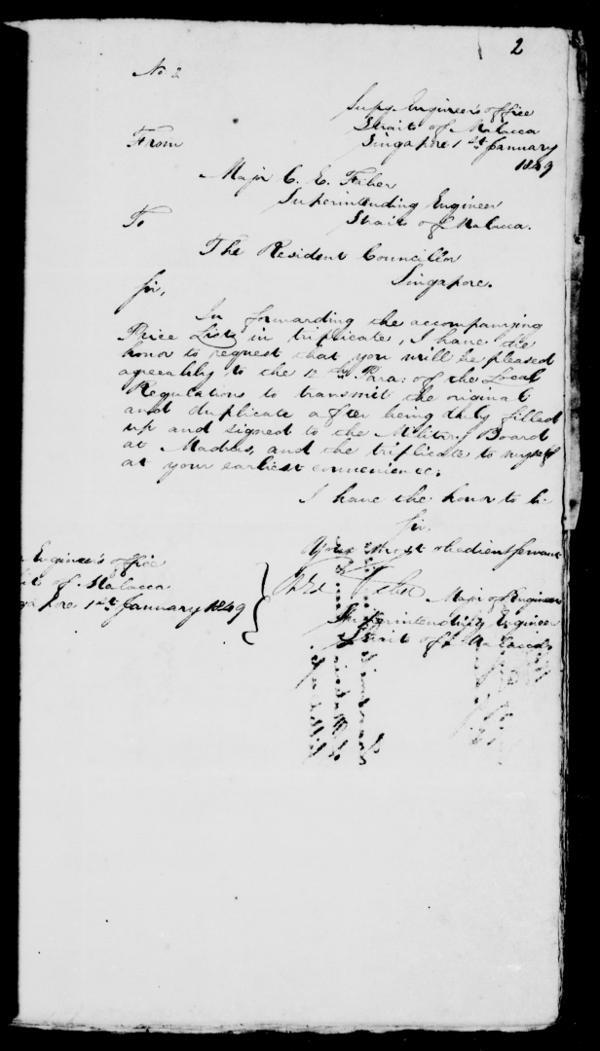 2
No. 2
Supg. Engineer's office
Strait of Malacca
Singapore 1st January
1849
From
Major C. E. Faber
Superintending Engineer
Strait of Malacca.
To
The Resident Councillor
Singapore.
Sir,
In forwarding the accompanying
Price Lists in triplicate, I have the
honor to request that you will be pleased
agreeably to the 12th Para: of the Local
Regulations to transmit the original
and duplicate after being duly filled
up and signed to the Military Board
at Madras, and the triplicate to myself
at your earliest convenience.
I have the honor to be
Sir,
Your most obedient Servant
Major of Engineer
Superintending Engineer
Strait of Malacca
Engineer's office
of Malacca
1st January 1849